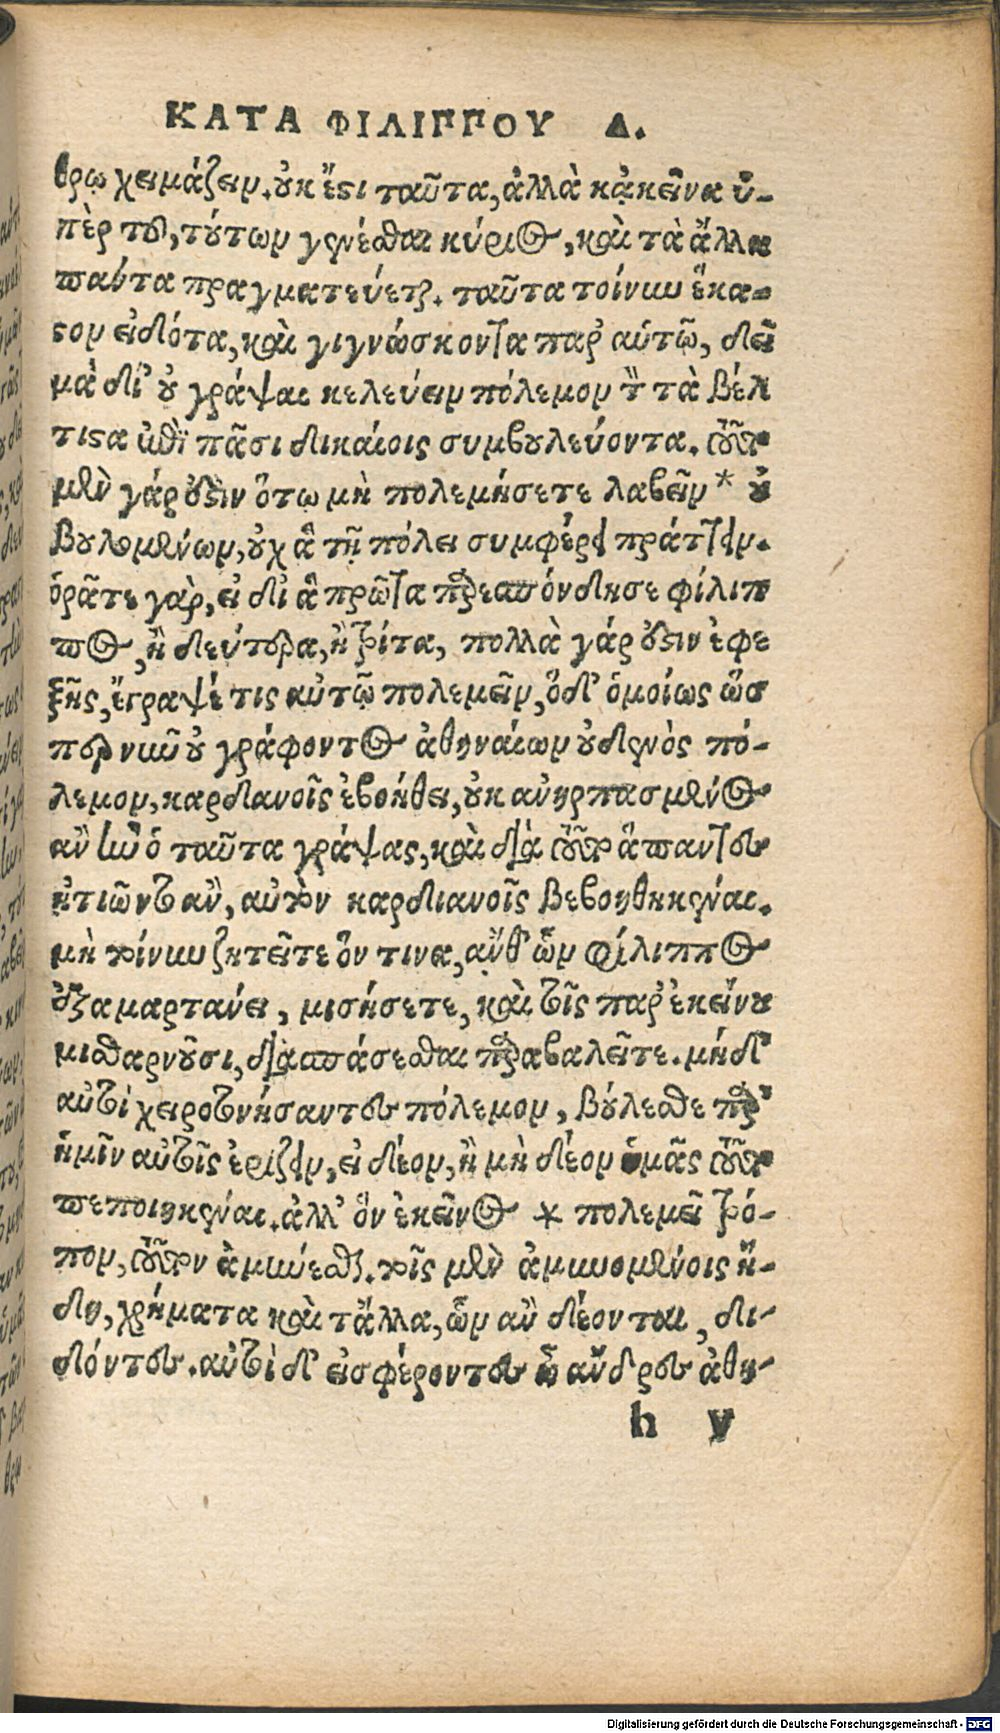 ΚΑΤΑ ΦΙΛΙΠΠΟΥ Δ.
θρῳ χειμάζειν. οὐκ ἔστι ταῦτα, ἀλλὰ κᾀκεῖνα ὑ-
πὲρ τοῦ, τούτων γενέσθαι κύριος, καὶ τὰ ἄλλα
πάντα πραγματεύεται. ταῦτα τοίνυν ἕκα-
στον εἰδότα, καὶ γιγνώσκοντα παρ' αὑτῷ, δεῖ
μὰ δί' οὐ γράψαι κελεύειν πόλεμον τὸν τὰ βέλ
τιστα ἐπὶ πᾶσι δικαίοις συμβουλεύοντα. τοῦτο
μὲν γάρ ὅτῳ μὴ πολεμήσετε λαβεῖν * οὐ
βουλομένων, οὐχ ἃ τῇ πόλει συμφέρει πράττειν.
ὁρᾶτε γὰρ, εἰ δι' ἃ πρῶτα παρεσπόνδησε φίλιπ
πος, ἢ δεύτερα, ἢ τρίτα, πολλὰ γάρ ἐστιν ἐφε
ξῆς, ἔγραψέ τις αὐτῷ πολεμεῖν, ὅδ' ὁμοίως ὥσ
περ νῦν οὐ γράφοντος ἀθηναίων οὐδενὸς πό-
λεμον, καρδιανοῖς ἐβοήθει, οὐκ ἀνηρπασμένος
ἂν ἦν ὁ ταῦτα γράψας, καὶ διὰ τοῦτο ἅπαντες
ᾐτιῶντο ἂν, αὐτὸν καρδιανοῖς βεβοηθηκέναι.
μὴ τοίνυν ζητεῖτε ὅν τινα, ἀνθ' ὧν φίλιππος
ἐξαμαρτάνει, μισήσετε, καὶ τοῖς παρ' ἐκείνου
μισθαρνοῦσι, διασπάσεσθαι παραβαλεῖτε. μήδ'
αὐτοὶ χειροτονήσαντες πόλεμον, βούλεσθε παρ'
ἡμῖν αὐτοῖς ἐρίζειν, εἰ δέον, ἢ μὴ δέον ὑμᾶς τοῦτο
πεποιηκέναι. ἀλλ' ὃν ἐκεῖνος * πολεμεῖ τρό-
πον, τοῦτον ἀμύνεσθαι. τοῖς μὲν ἀμυνομένοις ἤ-
δη, χρήματα καὶ τἄλλα, ὧν ἂν δέονται, δι-
δόντες. αὐτοὶ δ' εἰσφέροντες ὦ ἄνδρες ἀθη-
h v
Digitalisierung gefördert durch die Deutsche Forschungsgemeinschaft - DFG